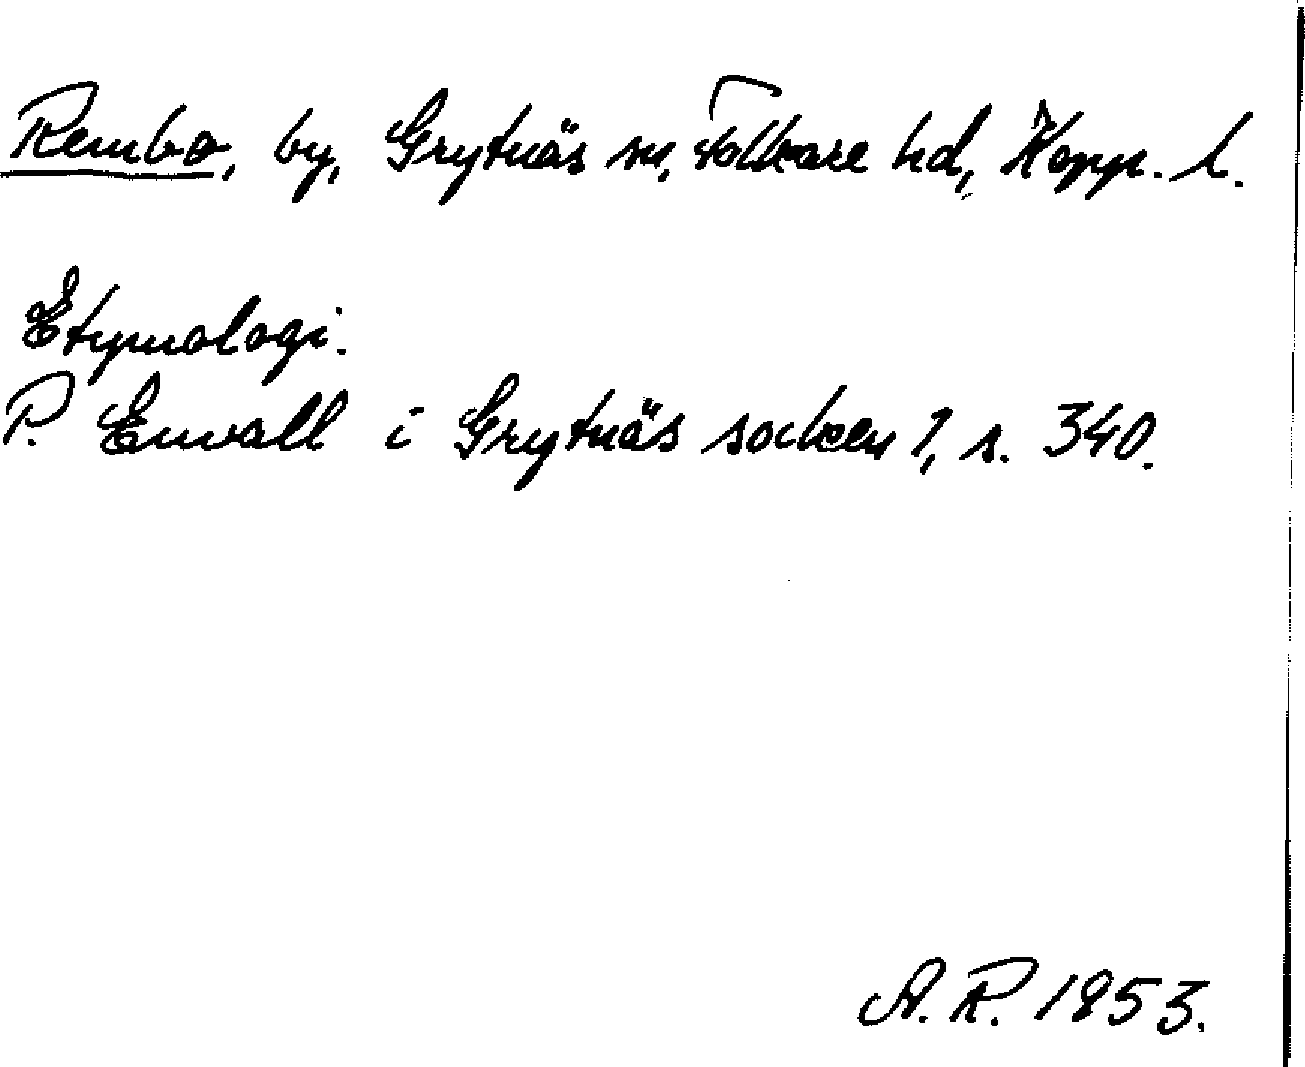 Rembo, by, Grytnäs sn, Folkare hd, Kopp. l.
Etymologi.
P. Envall i Grytnäs socken 1, s. 340.
A. R. 1953.